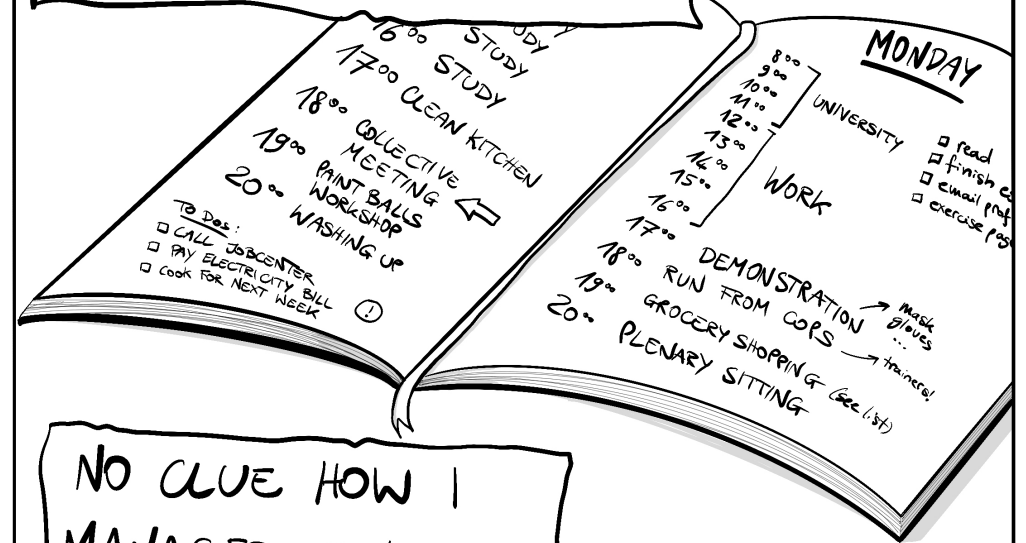 UDY
STUDY
16⁰⁰ STUDY
17⁰⁰ CLEAN KITCHEN
18⁰⁰ COLLECTIVE
MEETING
19⁰⁰ PAINT BALLS
WORKSHOP
20⁰⁰ WASHING UP
TO DOS:
CALL JOBCENTER
PAY ELECTRICITY BILL
COOK FOR NEXT WEEK
!
MONDAY
8⁰⁰
9⁰⁰
10⁰⁰
11⁰⁰
12⁰⁰
UNIVERSITY
13⁰⁰
14⁰⁰
15⁰⁰
16⁰⁰
WORK
read
finish
email prof
exercise
17⁰⁰ DEMONSTRATION
mask
gloves
...
18⁰⁰ RUN FROM COPS
trainers!
19⁰⁰ GROCERY SHOPPING (see list)
20⁰⁰ PLENARY SITTING
NO CLUE HOW I